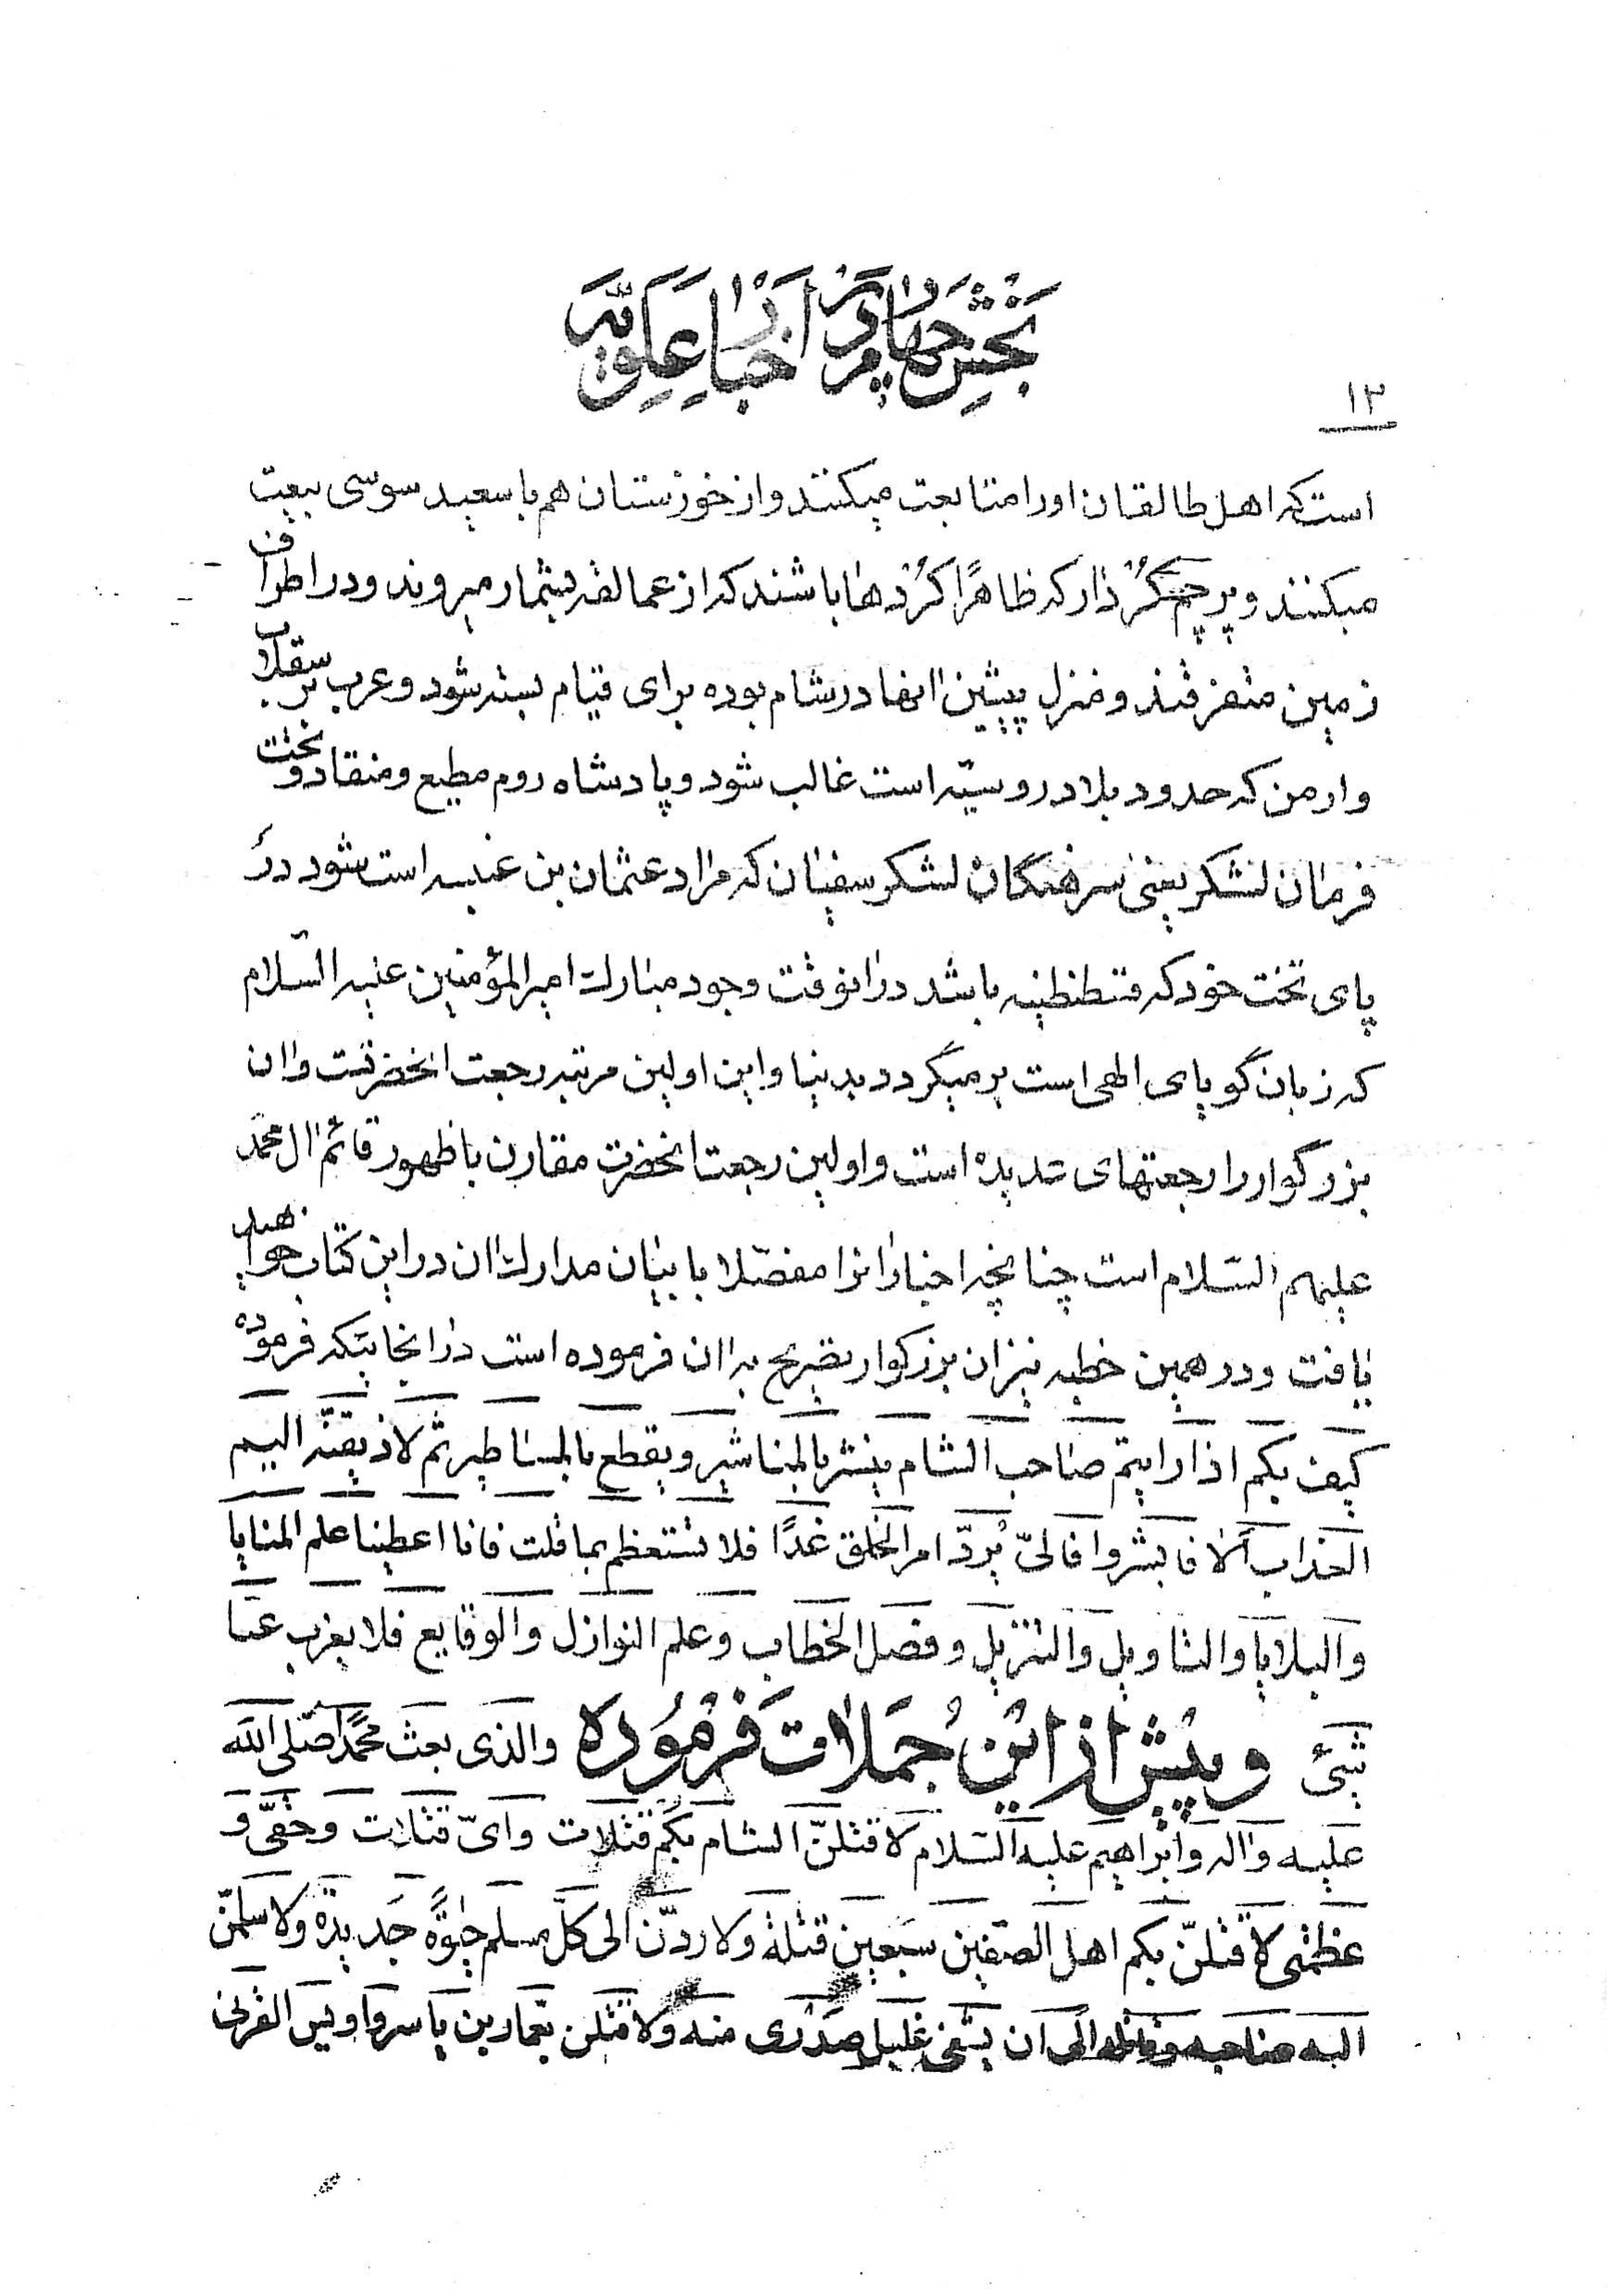 بخش چهارم در اخبار علویه
۱۲
است که اهل طالقان او را متابعت میکنند و از خوزستان هم با سعید سوسی بیعت
میکنند و پرچم کُردْ دار که ظاهرًا کُردْها باشند که از عمالقه بشمار میروند و در اطراف
زمین متفرقند و منزل پیشین آنها در شام بوده برای قیام بسته شود و عرب بر سقلاب
و ارمن که حدود بلاد روسیّه است غالب شود و پادشاه روم مطیع و منقاد و تحت
فرمان لشکر یعنی سرهنگان لشکر سفیان که مراد عثمان بن عنبسه است شود در
پای تخت خود که قسطنطنیه باشد در آنوقت وجود مبارك امیرالمؤمنین علیه السّلام
که زبان گویای الهی است برمیگردد بدنیا و این اولین مرتبه رجعت آنحضرتست و آن
بزرگوار را رجعتهای عدیده است و اولین رجعت آنحضرت مقارن با ظهور قائم آل محمّد
علیهم السّلام است چنانچه اخبار آنرا مفصّلا با بیان مدارك آن در این کتاب خواهید
یافت و در همین خطبه نیز آن بزرگوار تصریح به آن فرموده است در آنجائیکه فرموده
کیف بکم اذا رایتم صاحب الشام ینشر بالمناشیر و یقطع بالمساطیر ثم لاذیقنّه الیم
العذاب اَلا فابشروا فالیّ یُردّ امر الخلق غدًا فلا تستعظم بما قلت فانا اعطینا علم المنایا
والبلایا والتاویل والتنزیل وفصل الخطاب وعلم النوازل والوقایع فلا یعزب عنا
شیئ وپیش از این جملات فرموده والذی بعث محمّدًا صلّی الله
علیه واله وابراهیم علیه السّلام لاقتلنّ الشام بکم قتلات وایّ قتلات وحقّی و
عظمتی لاقتلنّ بکم اهل الصفین سبعین قتلة ولاردّن الی کلّ مسلم حیٰوةً جدیدة ولاسلمنّ
الیه صاحبه وقاتله الی ان یشفی غلیل صدری منه ولاقتلن بعمار بن یاسر واویس القرنی